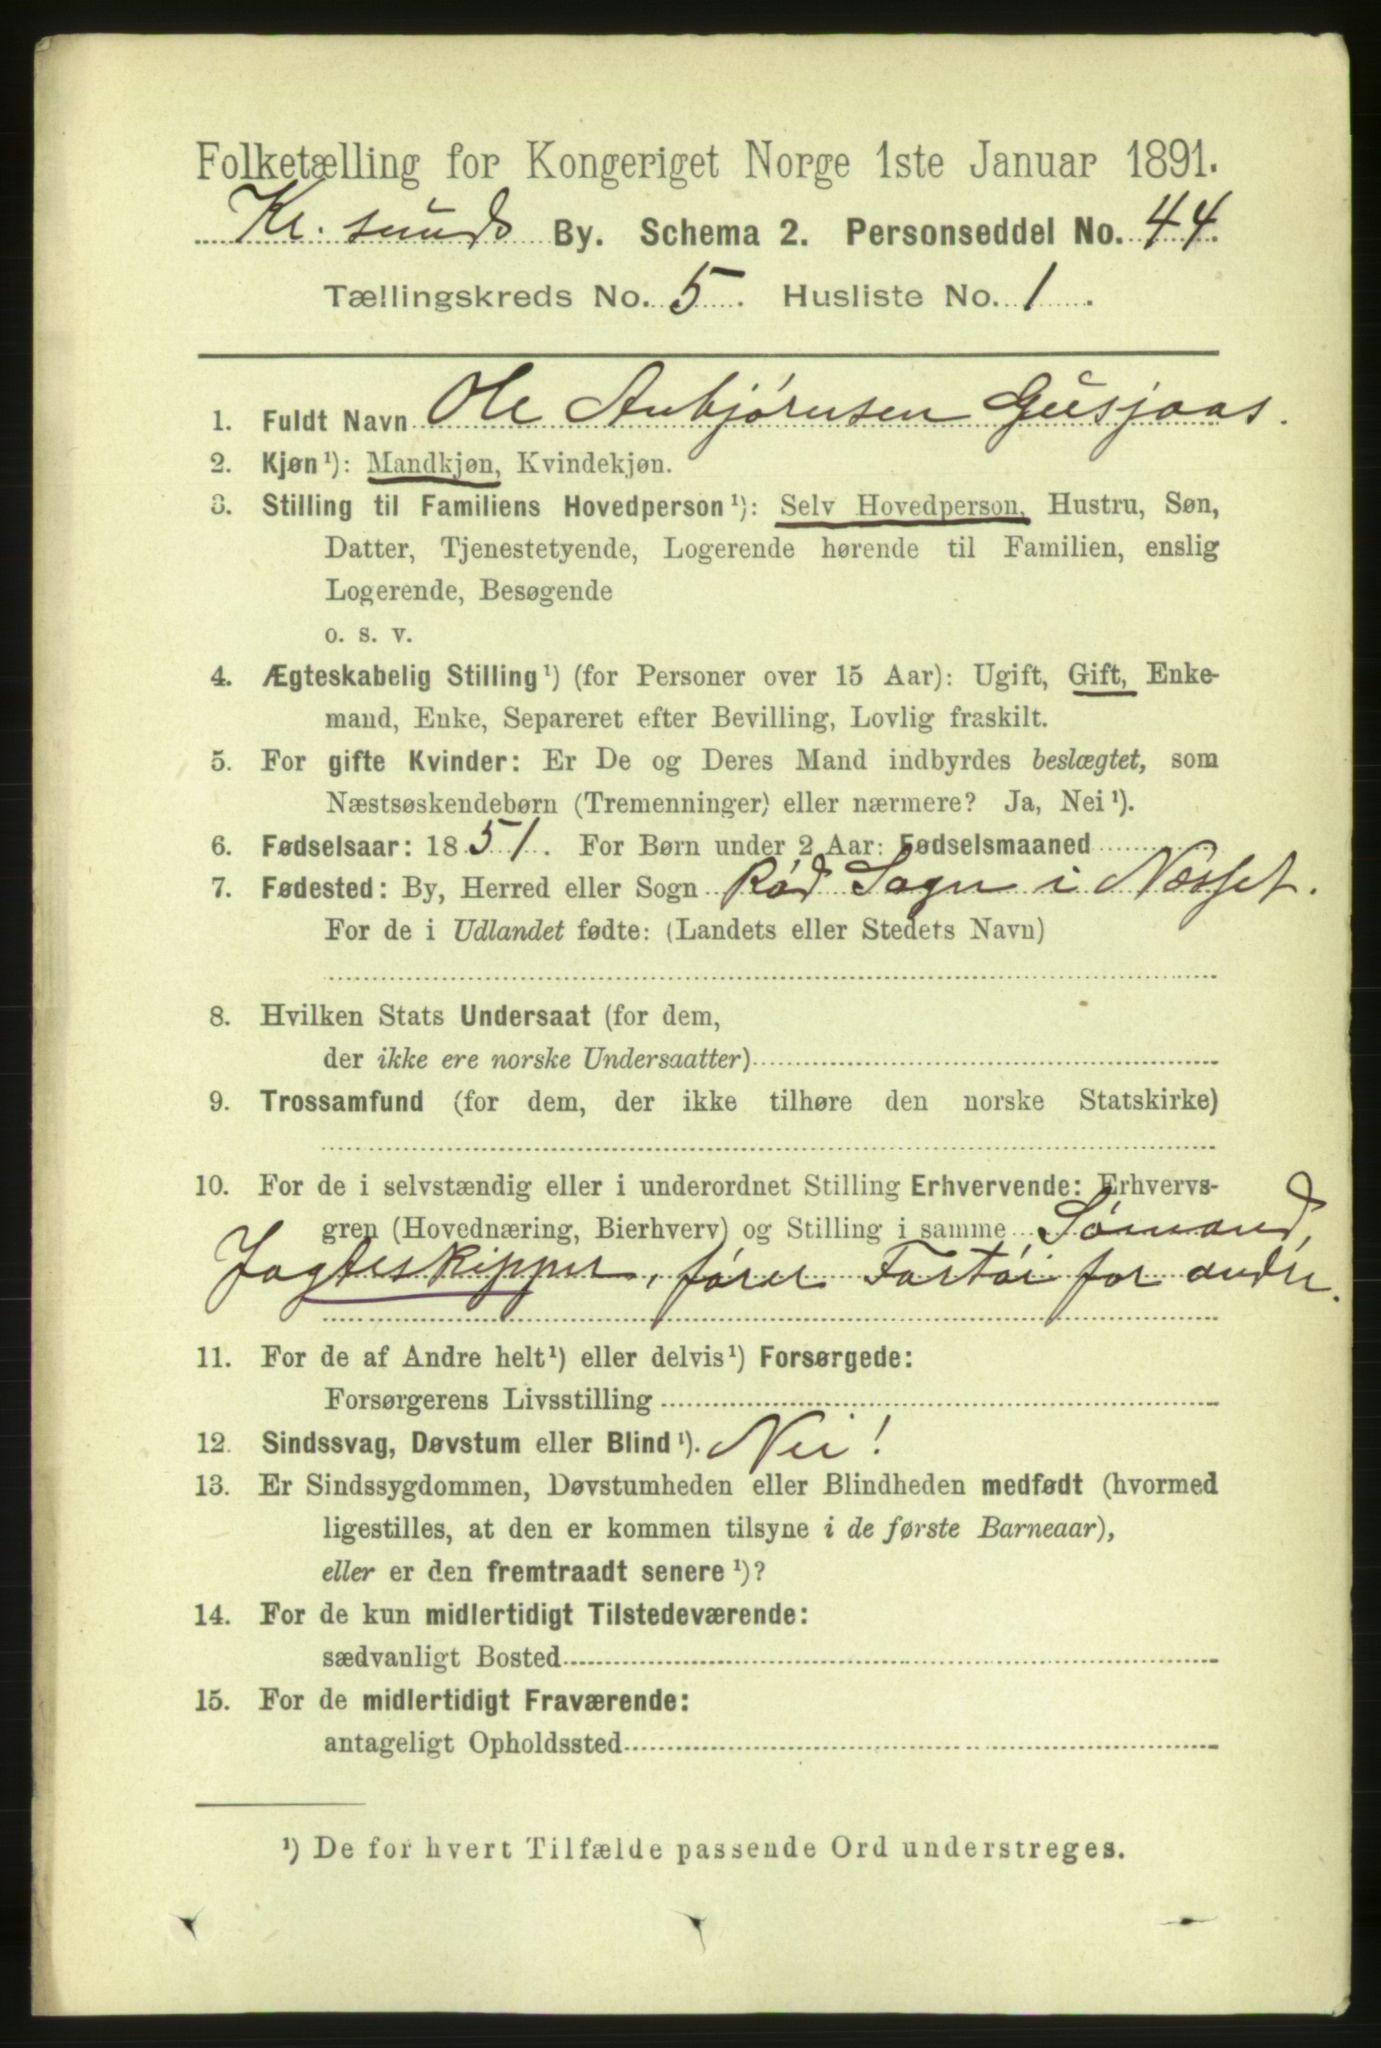 Folketælling for Kongeriget Norge 1ste Januar 1891.
Kr. sunds By. Schema 2. Personseddel No. 44.
Tællingskreds No. 5. Husliste No. 1.
1. Fuldt Navn Ole Anbjørnsen Gusjaas.
2. Kjøn ¹): Mandkjøn, Kvindekjøn.
3. Stilling til Familiens Hovedperson ¹): Selv Hovedperson, Hustru, Søn,
Datter, Tjenestetyende, Logerende hørende til Familien, enslig
Logerende, Besøgende
o. s. v.
4. Ægteskabelig Stilling ¹) (for Personer over 15 Aar): Ugift, Gift, Enke-
mand, Enke, Separeret efter Bevilling, Lovlig fraskilt.
5. For gifte Kvinder: Er De og Deres Mand indbyrdes beslægtet, som
Næstsøskendebørn (Tremenninger) eller nærmere? Ja, Nei ¹).
6. Fødselsaar: 1851. For Børn under 2 Aar: Fødselsmaaned
7. Fødested: By, Herred eller Sogn Rød Sogn i Nesset.
For de i Udlandet fødte: (Landets eller Stedets Navn)
8. Hvilken Stats Undersaat (for dem,
der ikke ere norske Undersaatter)
9. Trossamfund (for dem, der ikke tilhøre den norske Statskirke)
10. For de i selvstændig eller i underordnet Stilling Erhvervende: Erhvervs-
gren (Hovednæring, Bierhverv) og Stilling i samme Sømand,
Jagteskipper, fører Fartøi for andre.
11. For de af Andre helt ¹) eller delvis ¹) Forsørgede:
Forsørgerens Livsstilling
12. Sindssvag, Døvstum eller Blind ¹). Nei!
13. Er Sindssygdommen, Døvstumheden eller Blindheden medfødt (hvormed
ligestilles, at den er kommen tilsyne i de første Barneaar),
eller er den fremtraadt senere ¹)?
14. For de kun midlertidigt Tilstedeværende:
sædvanligt Bosted
15. For de midlertidigt Fraværende:
antageligt Opholdssted
¹) De for hvert Tilfælde passende Ord understreges.